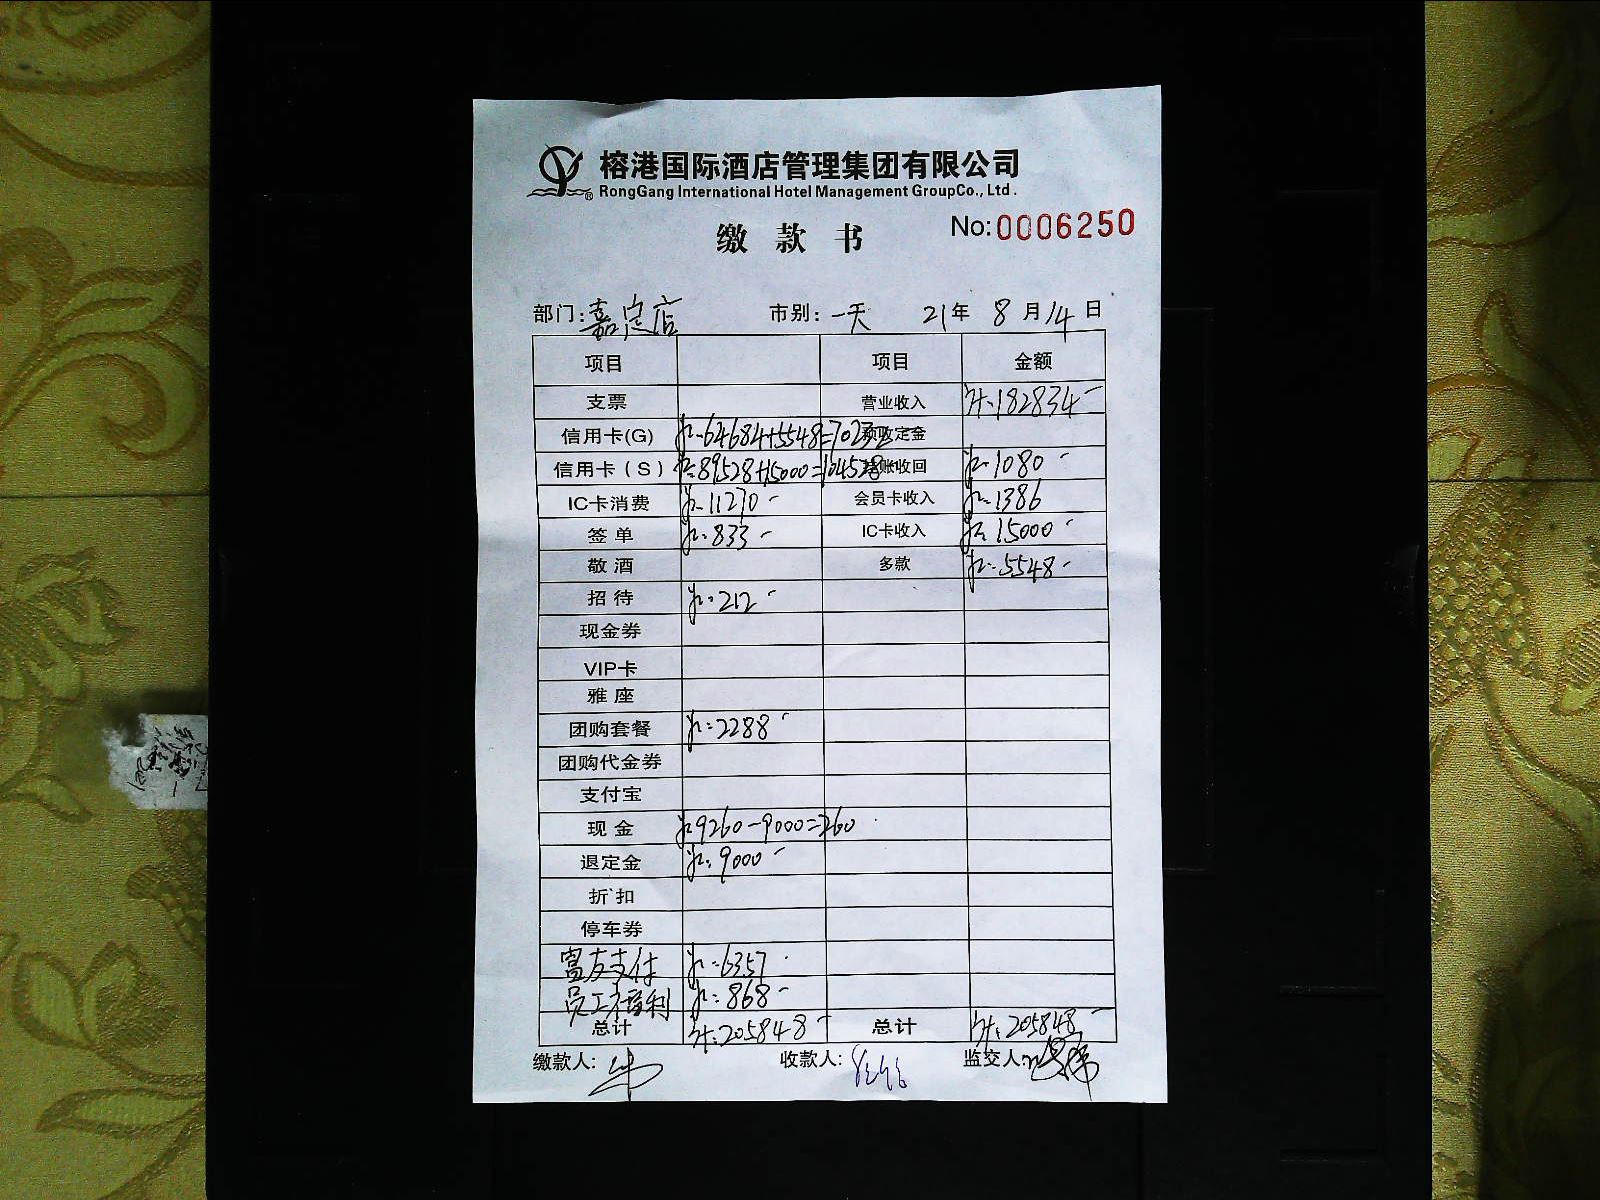 榕港国际酒店管理集团有限公司
RongGang International Hotel Management GroupCo., Ltd.
缴款书 No:0006250
部门:嘉定店 市别:一天 21年8月14日
项目 项目 金额
支票 营业收入 计:182834-
信用卡(G) 记:64684+5548=70232 预收定金
信用卡(S) 记:89528+15000=104528 挂账收回 记:1080-
IC卡消费 记:11270- 会员卡收入 记:1386
签单 记:833- IC卡收入 记:15000-
敬酒 多款 记:5548-
招待 记:212-
现金券
VIP卡
雅座
团购套餐 记:2288-
团购代金券
支付宝
现金 记9260-9000=260
退定金 记:9000-
折扣
停车券
富友支付 记:6357
员工福利 记:868-
总计 计:205848- 总计 计:205848-
缴款人: 收款人: 监交人: